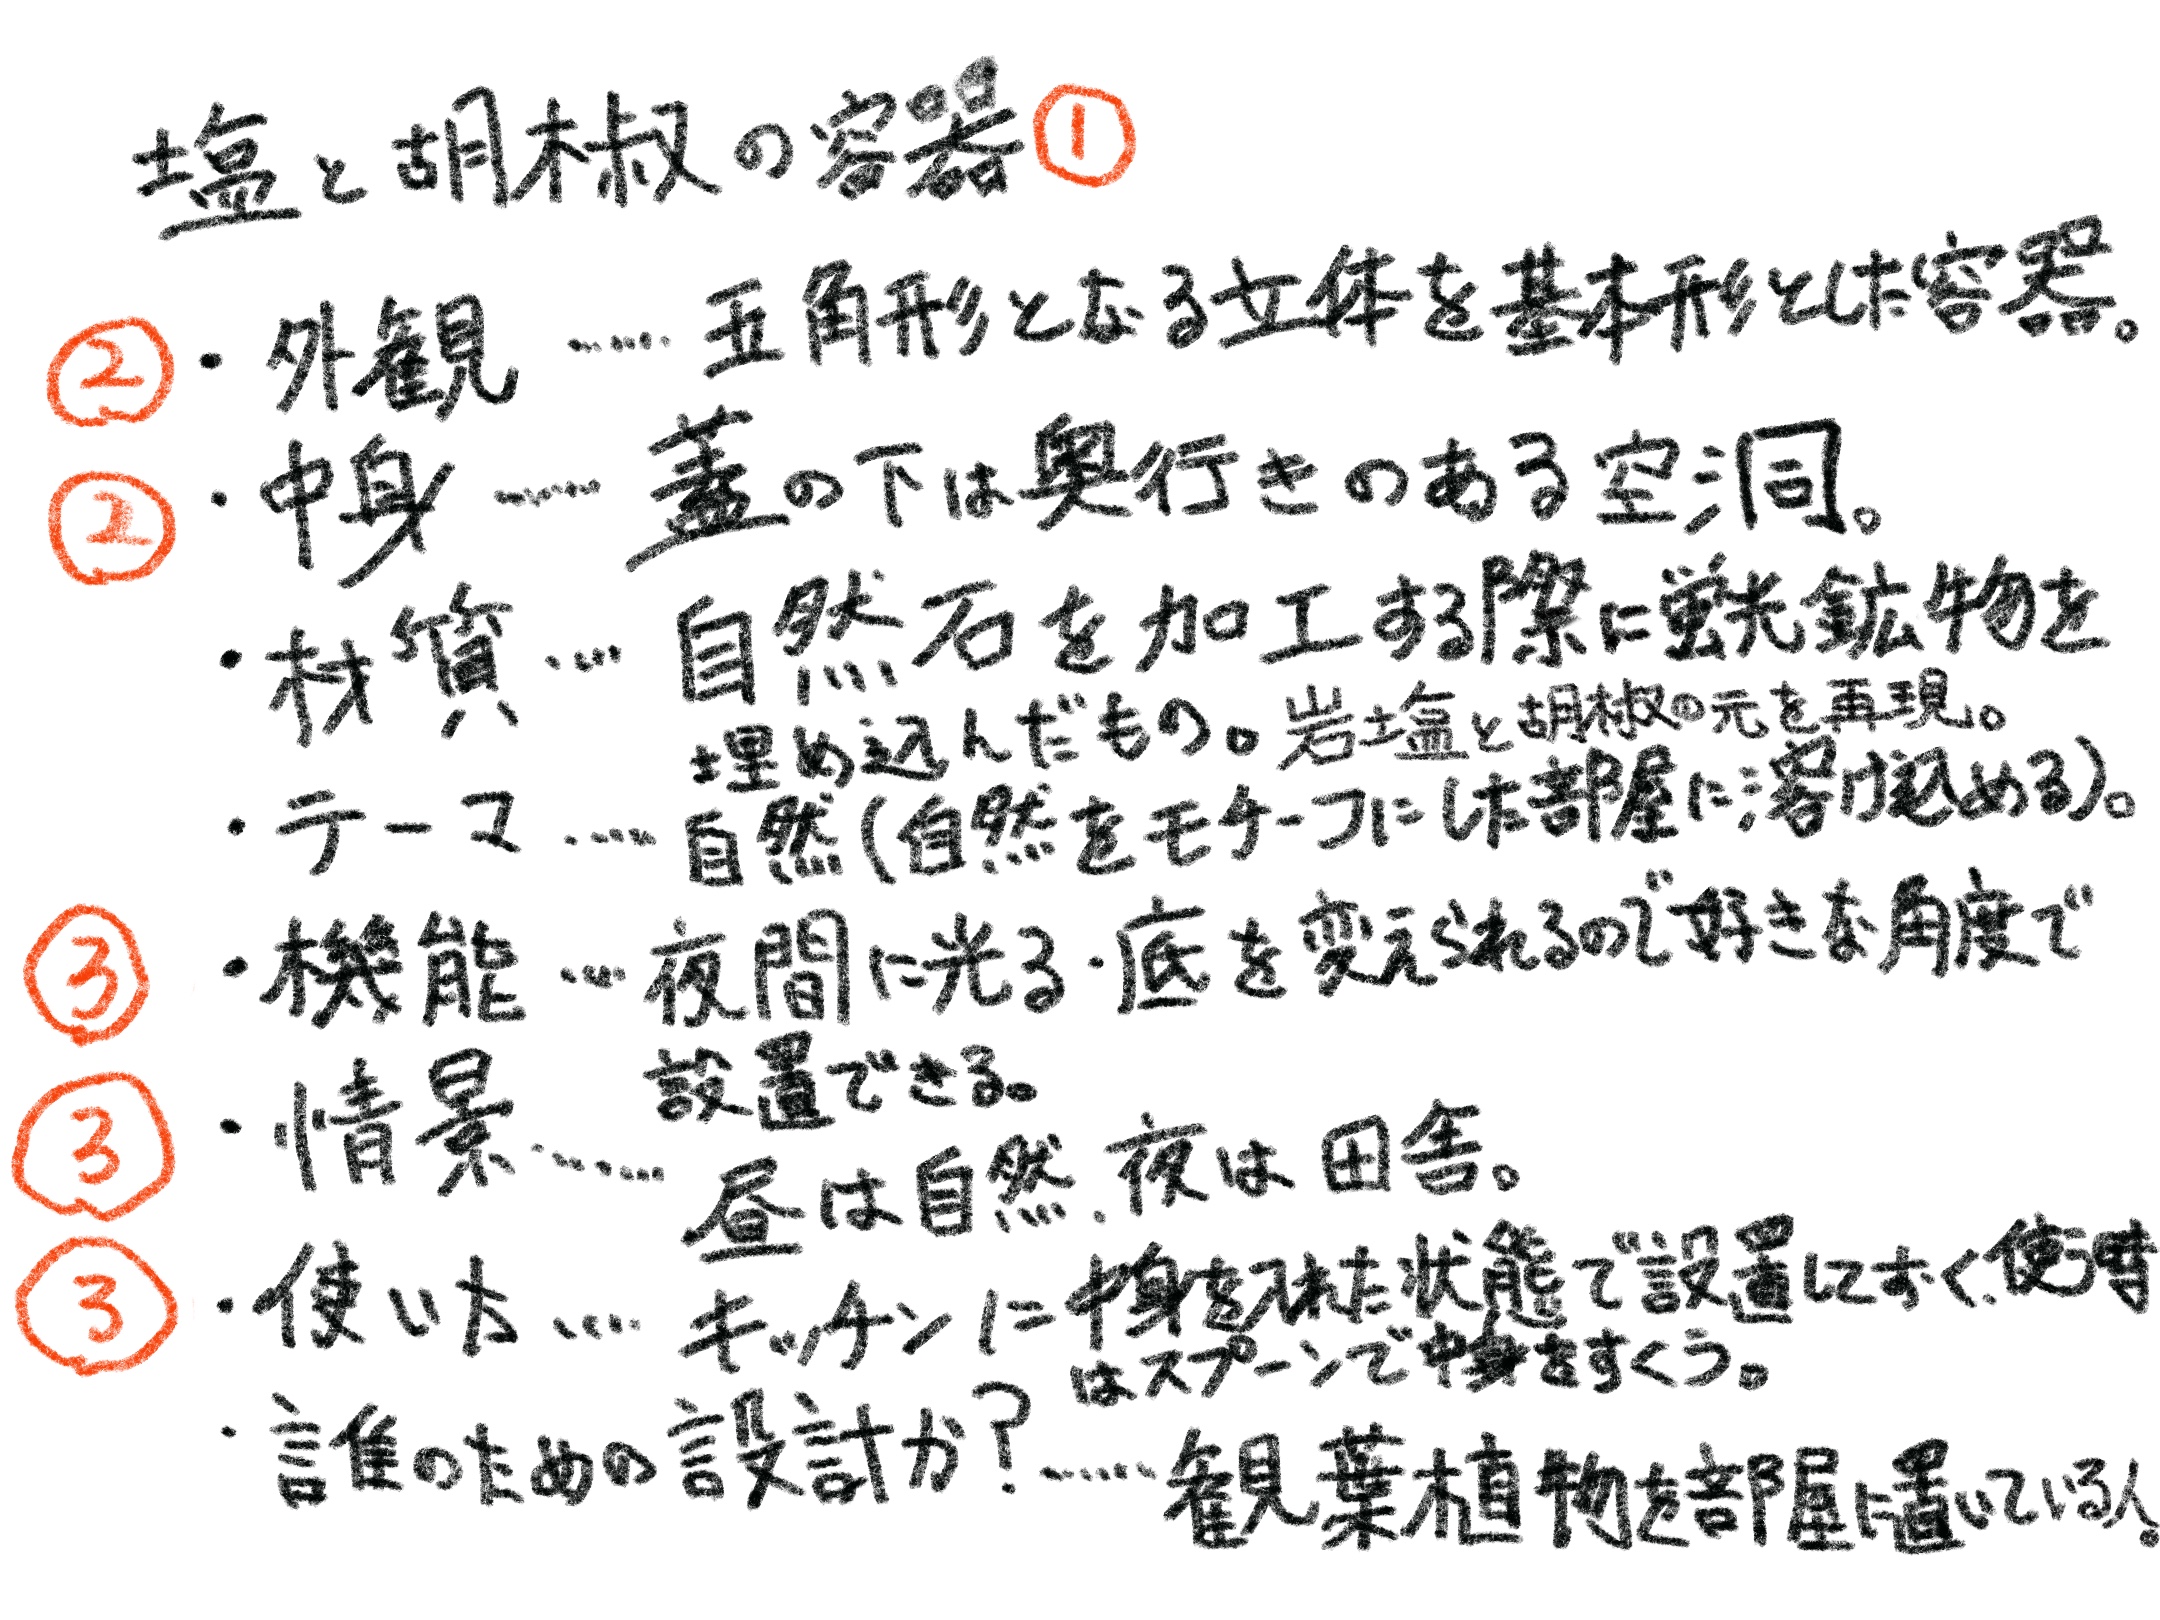 塩と胡椒の容器①
②・外観……五角形となる立体を基本形とした容器。
②・中身……蓋の下は奥行きのある空洞。
・材質……自然石を加工する際に蛍光鉱物を
埋め込んだもの。岩塩と胡椒の元を再現。
・テーマ……自然(自然をモチーフにした部屋に溶け込める)。
③・機能……夜間に光る・底を変えられるので好きな角度で
設置できる。
③・情景……昼は自然、夜は田舎。
③・使い方……キッチンに中身を入れた状態で設置しておく、使う時
はスプーンで中身をすくう。
・誰のための設計か?……観葉植物を部屋に置いている人。